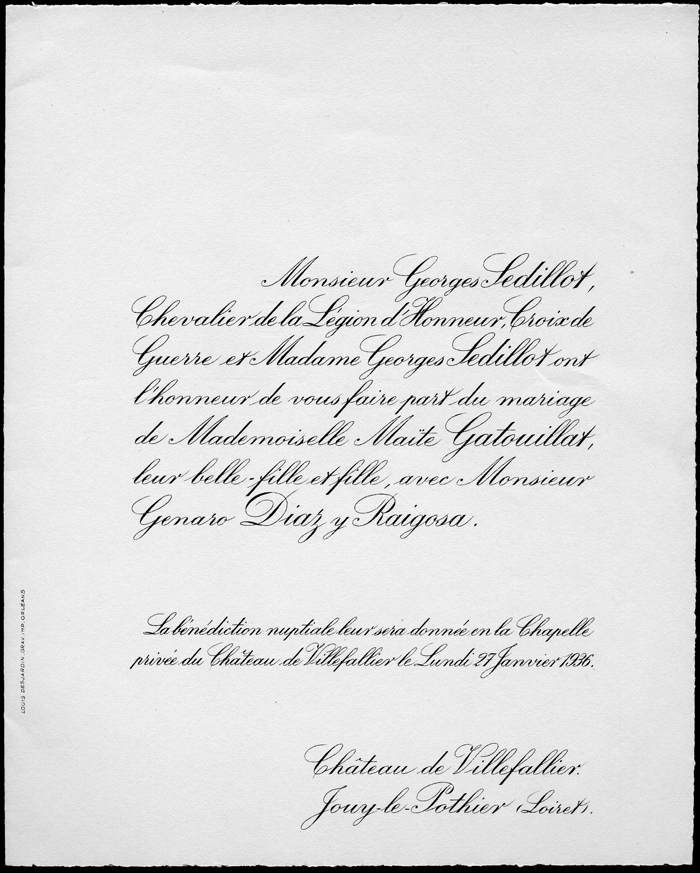 Monsieur Georges Sedillot,
Chevalier de la Légion d'Honneur, Croix de
Guerre et Madame Georges Sedillot ont
l'honneur de vous faire part du mariage
de Mademoiselle Maïtè Gatouillat,
leur belle-fille et fille, avec Monsieur
Genaro Diaz y Raigosa.
La bénédiction nuptiale leur sera donnée en la Chapelle
privée du Château de Villefallier le Lundi 27 Janvier 1936.
Château de Villefallier.
Jouy-le-Pothier (Loiret).
LOUIS DESJARDIN, GRAV. IMP. ORLÉANS